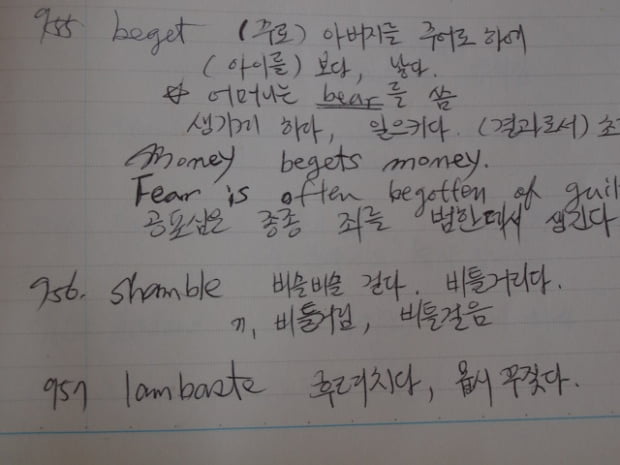 955 beget (주로) 아버지를 주어로 하여
(아이를) 보다, 낳다.
☆ 어머니는 bear를 씀
생기게 하다, 일으키다. (결과로서) 초
Money begets money.
Fear is often begotten of guil
공포심은 종종 죄를 범한데서 생긴다
956. shamble 비슬비슬 걷다. 비틀거리다.
n, 비틀거림, 비틀걸음
957 lambaste 후려치다, 몹시 꾸짖다.